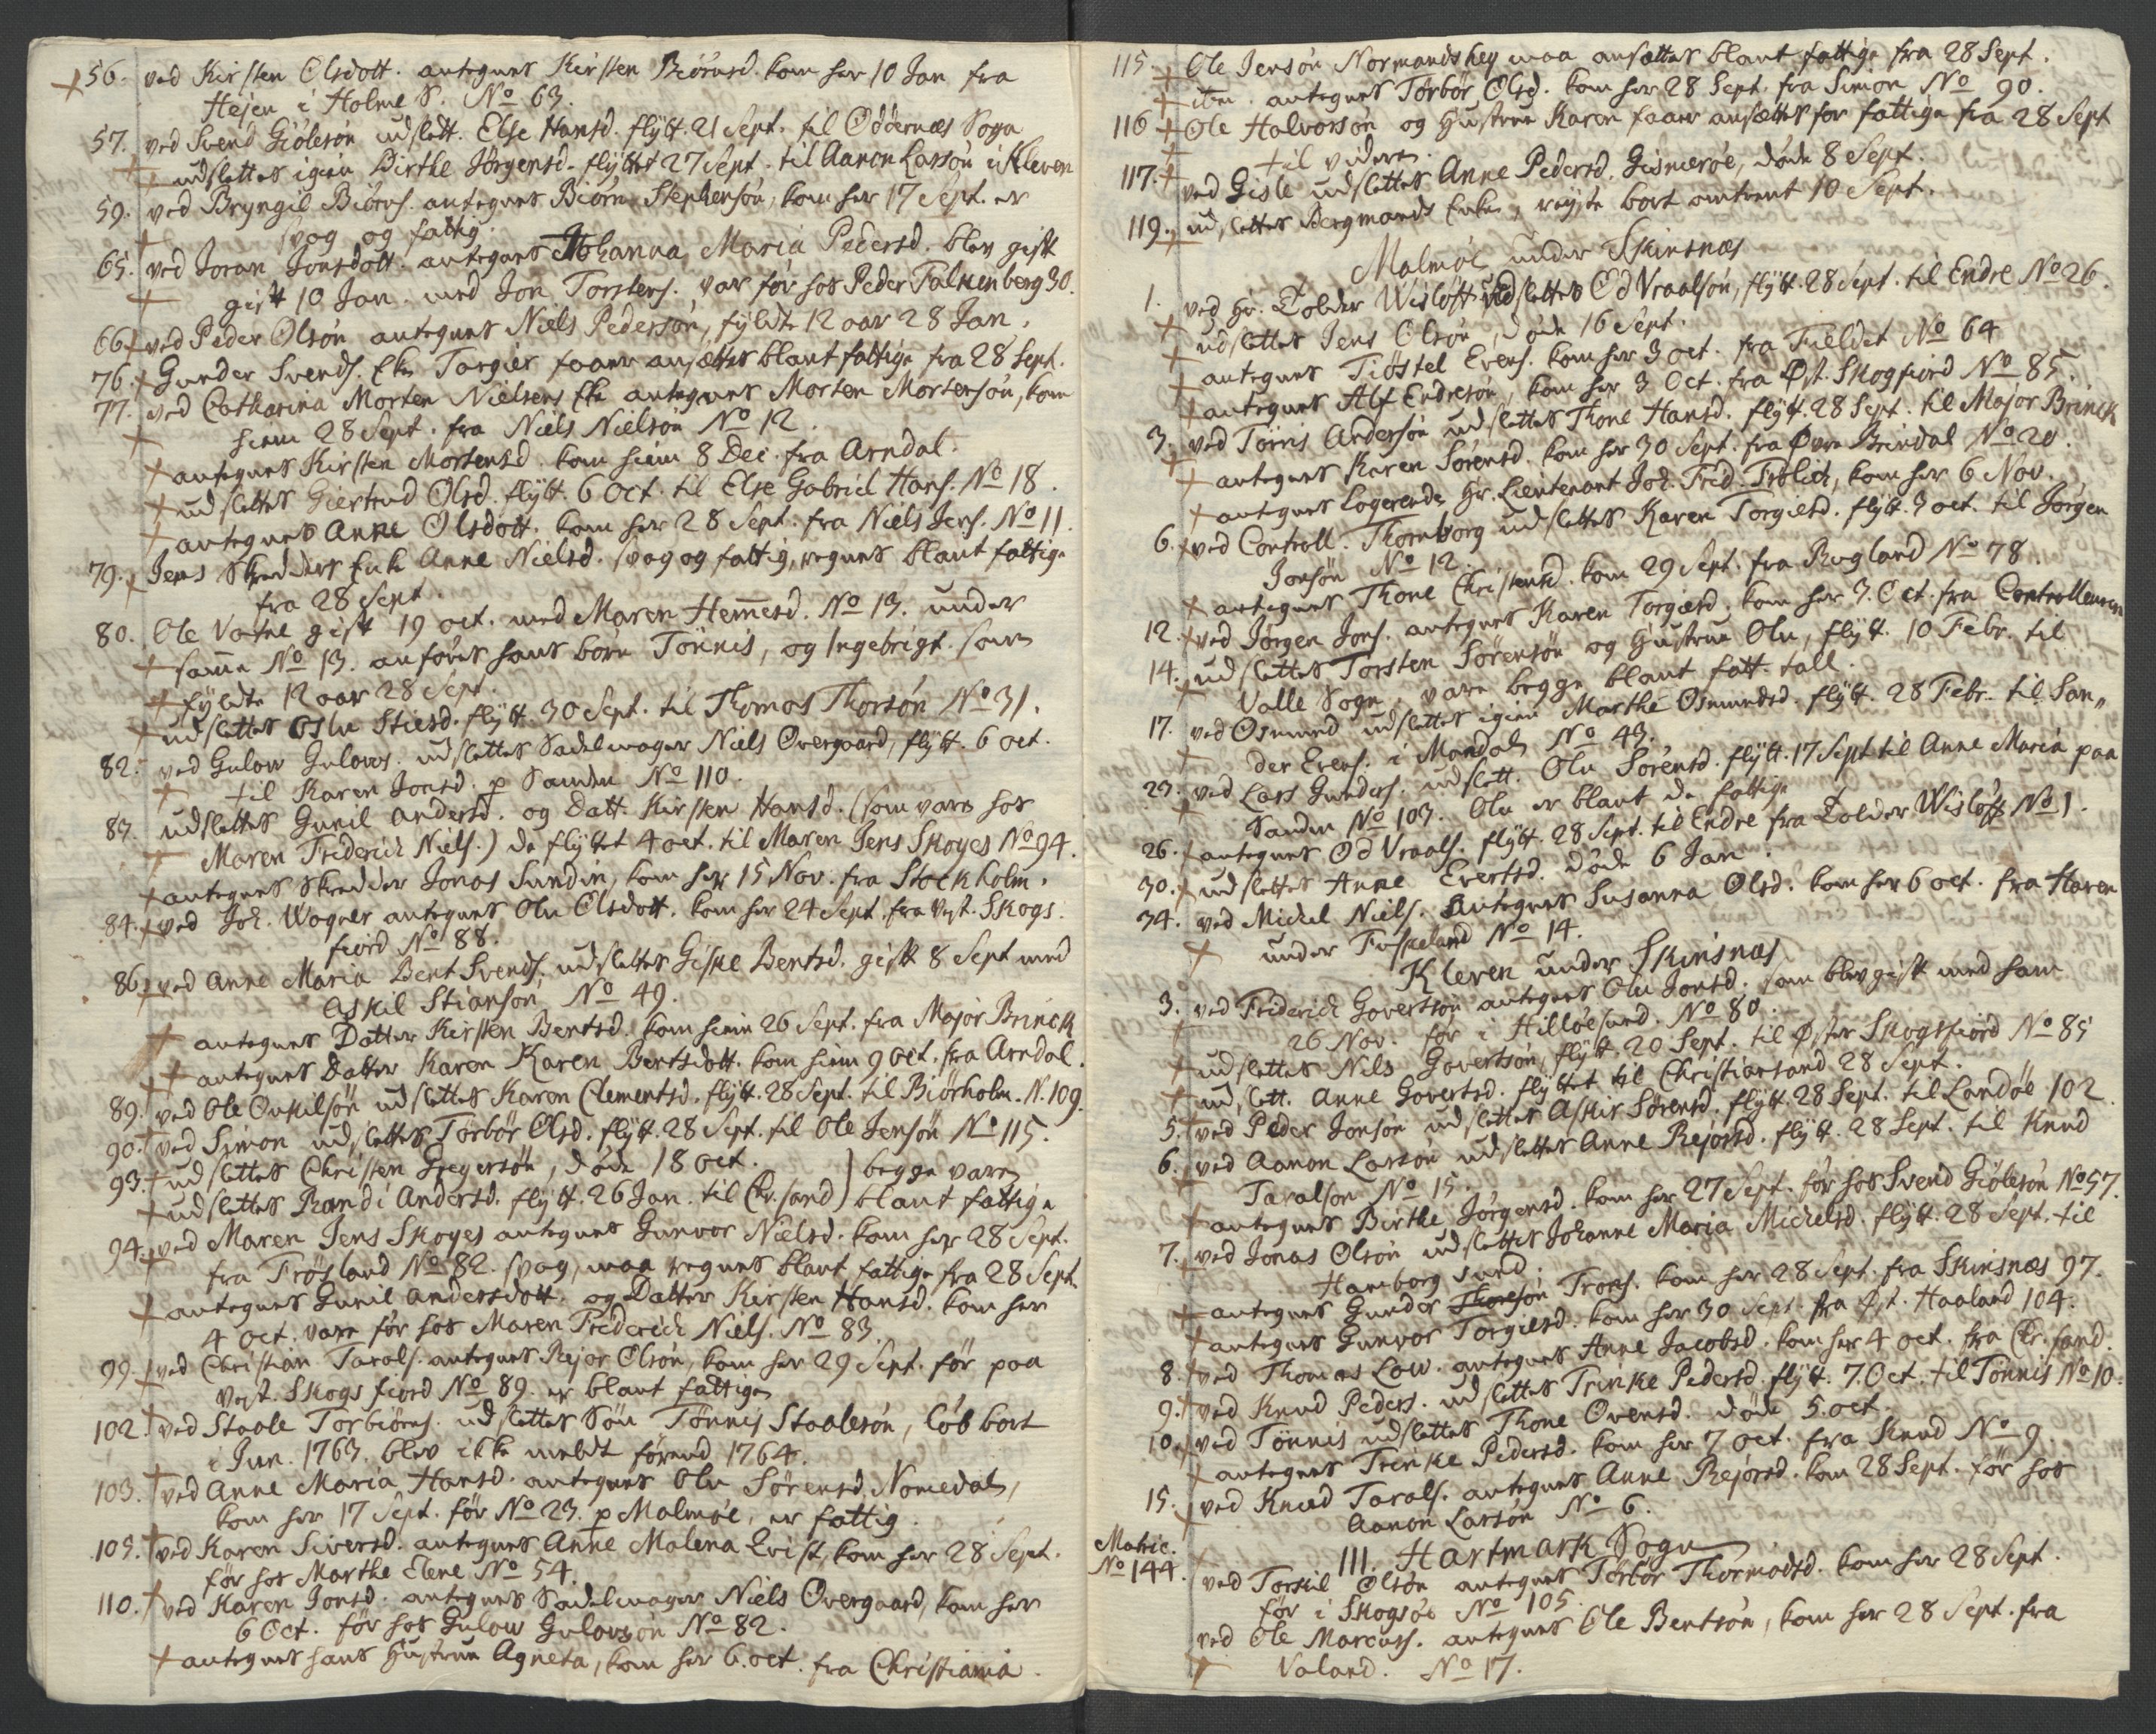 56. ved Kirsten Olsdott. antegnes Kirsten Biörnsd. kom her 10 Jan fra
Hejen i Holme S. No 63.
57. ved Svend Giölesön udslett. Else Hansd. flÿtt. 21 Sept. til Oddernæs Sogn
udslettes igien Birthe Jörgensd. flÿttet 27 Sept. til Aanon Larsön i Kleven
59. ved Bryngil Biörns. antegnes Biörn Stephensön, kom her 17 Sept. er
svag og fattig.
65. ved Joran Jonsdott. antegnes Johanna Maria Pedersd. blev gift
gift 10 Jan. med Jon Torstens. var för hos Peder Falkenberg 30.
66. ved Peder Olsön antegnes Niels Pedersön, fÿldte 12 aar 28 Jan.
76. Gunder Svends. Eke Torgier faaer ansættes blant fattige fra 28 Sept.
77. ved Catharina Morten Nielsens Eke antegnes Morten Mortensön, kom
hiem 28 Sept. fra Niels Nielsön No 12.
antegnes Kirsten Mortensd. kom hiem 8 Dec. fra Arndal.
udslettes Giertrud Olsd. flÿtt. 6 Oct. til Else Gabriel Hans. No 18.
antegnes Anne Olsdott. kom her 28 Sept. fra Niels Jens. No 11.
79. Jens Skredders Enke Anne Nielsd. svag og fattig, regnes blant fattige
fra 28 Sept.
80. Ole Vatne gift 19 oct. med Maren Hem̄esd. No 13. under
sam̄e No 13. anföres hans börn Tönnis, og Ingebrigt som
fÿldte 12 aar 28 Sept.
udslettes Oslu Stiesd. flÿtt. 30 Sept. til Thomas Thorsön No 31.
82. ved Gulow Gulows. udslettes Sadelmager Niels Overgaard, flÿtt. 6 oct.
til Karen Jonsd. p Sanden No 110.
83. udslettes Gunil Andersd. og Datt. Kirsten Hansd. (som vare hos
Maren Friderich Niels.) de flÿttet 4 oct. til Maren Jens Skoyes No 94.
antegnes Skredder Jonas Sundin, kom her 15 Nov. fra Stockholm.
84. ved Joh. Wagner antegnes Olu Olsdott. kom her 24 Sept. fra Vest. Skogs
fiord No 88.
86. ved Anne Maria Bent Svends. udslettes Giske Bentsd. gift 8 Sept med
Askil Stiansön, No 49.
antegnes Datter Kirsten Bentsd. kom hiem 26 Sept. fra Major Brinck
antegnes Datter Karen Karen Bentsdott. kom hiem 9 Oct. fra Arndal.
89. ved Ole Onkilsön udslettes Karen Clementsd. flÿtt. 28 Sept. til Biörholm. N. 109.
90. ved Simon udslettes Törbör Olsd. flÿtt. 28 Sept. til Ole Jensön No 115.
93. udslettes Christen Gregersön, döde 18 oct. ) begge vare
udslettes Randi Andersd. flÿtt. 26 Jan. til Chr.sand) blant fattige
94. ved Maren Jens Skoyes antegnes Gunvor Nielsd. kom her 28 Sept.
fra Trösland No 82. svag, maa regnes blant fattige fra 28 Sept.
antegnes Gunil Andersdott. og Datter Kirsten Hansd. kom her
4 Oct. vare för hos Maren Friderich Niels. No 83.
99. ved Christian Tarals. antegnes Rejar Olsön, kom her 29 Sept. för paa
Vest. Skogsfiord No 89. er blant fattige
102. ved Staale Torbiörns. udslettes Sön Tönnis Staalesön, löb bort
i Jun. 1763. blev ikke meldt förend 1764.
103. ved Anne Maria Hansd. antegnes Olu Sörensd. Nomedal,
kom her 17 Sept. för No 23. p Malmöe, er fattig.
105. ved Karen Siversd. antegnes Anne Malena Erist, kom her 28 Sept.
för hos Marthe Elene No 54.
110. ved Karen Jonsd. antegnes Sadelmager Niels Overgaard, kom her
6 Oct. för hos Gulow Gulowsön No 82.
antegnes hans Hustrue Agneta, kom her 6. oct. fra Christiania.
115. Ole Jensön Normandshey maa ansættes blant fattige fra 28 Sept.
item. antegnes Törbör Olsd. kom her 28 Sept. fra Simon No 90.
116 Ole Halvorsön og Hustrue Karen faaer ansættes for fattige fra 28 Sept
til videre.
117. ved Gisle udslettes Anne Pedersd. Gismeröe, döde 8 Sept.
119. udslettes Bergmands Enke, reyste bort omtrent 10 Sept.
Malmöe under Skinsnæs
1. ved Hr. Tolder Wislöft udslettes Od Vraalsön, flÿtt. 28 Sept. til Endre No 26.
udslettes Jens Olsön, döde 16 Sept.
antegnes Tiöstel Evens. kom her 3 oct. fra Fieldet No 64
antegnes Alf Endresön, kom her 3 Oct. fra Öst. Skogfiord No 85.
3. ved Tönnis Andersön udslettes Thone Hansd. flÿtt. 28 Sept. til Major Brinck
antegnes Karen Sörensd. kom her 30 Sept. fra Övre Brindal No 20.
antegnes Logerende Hr. Lieutenant Joh. Frid. Frölich, kom her 6 Nov.
6. ved Controll. Thornborg udslettes Karen Torgiesd. flÿtt. 3 oct. til Jörgen
Jonsön No 12.
antegnes Thone Christensd. kom 29 Sept. fra Rugland No 78.
12. ved Jörgen Jons. antegnes Karen Torgiesd. kom her 3. Oct. fra Controlleuren
14. udslettes Torsten Sörensön og Hustrue Olu, flÿtt. 10 Febr. til
Valle Sogn, vare begge blant fatt. tall.
17. ved Osmund udslettes igien Marthe Osmundsd. flÿtt. 28 Febr. til San„
der Evens. i Mandal No 43.
23. ved Lars Gunders. udslett. Olu Sörensd. flÿtt. 17 Sept til Anne Maria paa
Sanden No 103. Olu er blant de fattige
26. antegnes Od Vraals. flÿtt. 28 Sept. til Endre fra Tolder Wislöft No 1.
30. udslettes Anne Evertsd. döde 6 Jan.
34. ved Michel Niels. antegnes Susanna Olsd. kom her 6 oct. fra Haven
under Fuskeland No 14.
Kleven under Skinsnæs
3. ved Friderich Govertsön antegnes Olu Jonsd. som blev gift med ham
26 Nov. för i Hillöesund. No 80.
udslettes Nils Govertsön, flÿtt. 20 Sept. til Öster Skogsfiord No 85
udslett. Anne Govertsd. flÿttet til Christiansand 28 Sept.
5. ved Peder Jonsön udslettes Askir Sörensd. flÿtt 28 Sept. til Landöe 102.
6. ved Aanon Larsön udslettes Anne Rejorsd. flÿtt. 28 Sept. til Knud
Taralson No 15.
antegnes Birthe Jörgensd. kom her 27 Sept. för hos Svend Giölesön No 57.
7. ved Jonas Olsön udslettes Johanne Maria Michelsd. flÿtt. 28 Sept. til
Hamborg Sund.
antegnes Gunder Thoresön Trons. kom her 28 Sept. fra Skinsnæs 97.
antegnes Gunvor Torgiesd. kom her 30 Sept. fra Öst. Haaland 104.
8. ved Thomas Low. antegnes Anne Jacobsd. kom her 4 oct. fra Chr.sand.
9. ved Knud Peders. udslettes Trinke Pedersd. flÿtt. 7. Oct. til Tönnis No 10.
10. ved Tönnis udslettes Thone Ovensd. döde 5. oct.
antegnes Trinke Pedersd. kom her 7 oct. fra Knud No 9
15. ved Knud Tarals. antegnes Anne Rejorsd. kom 28 Sept. för hos
Aanon Larsön No 6.
III. Hartmark Sogn
Matric.
No 144. ved Torkil Olsön antegnes Törbör Thormodsd. kom her 28 Sept.
för i Skogsöe No 105.
ved Ole Marcuss. antegnes Ole Bentsön, kom her 28 Sept. fra
Valand. No 17.